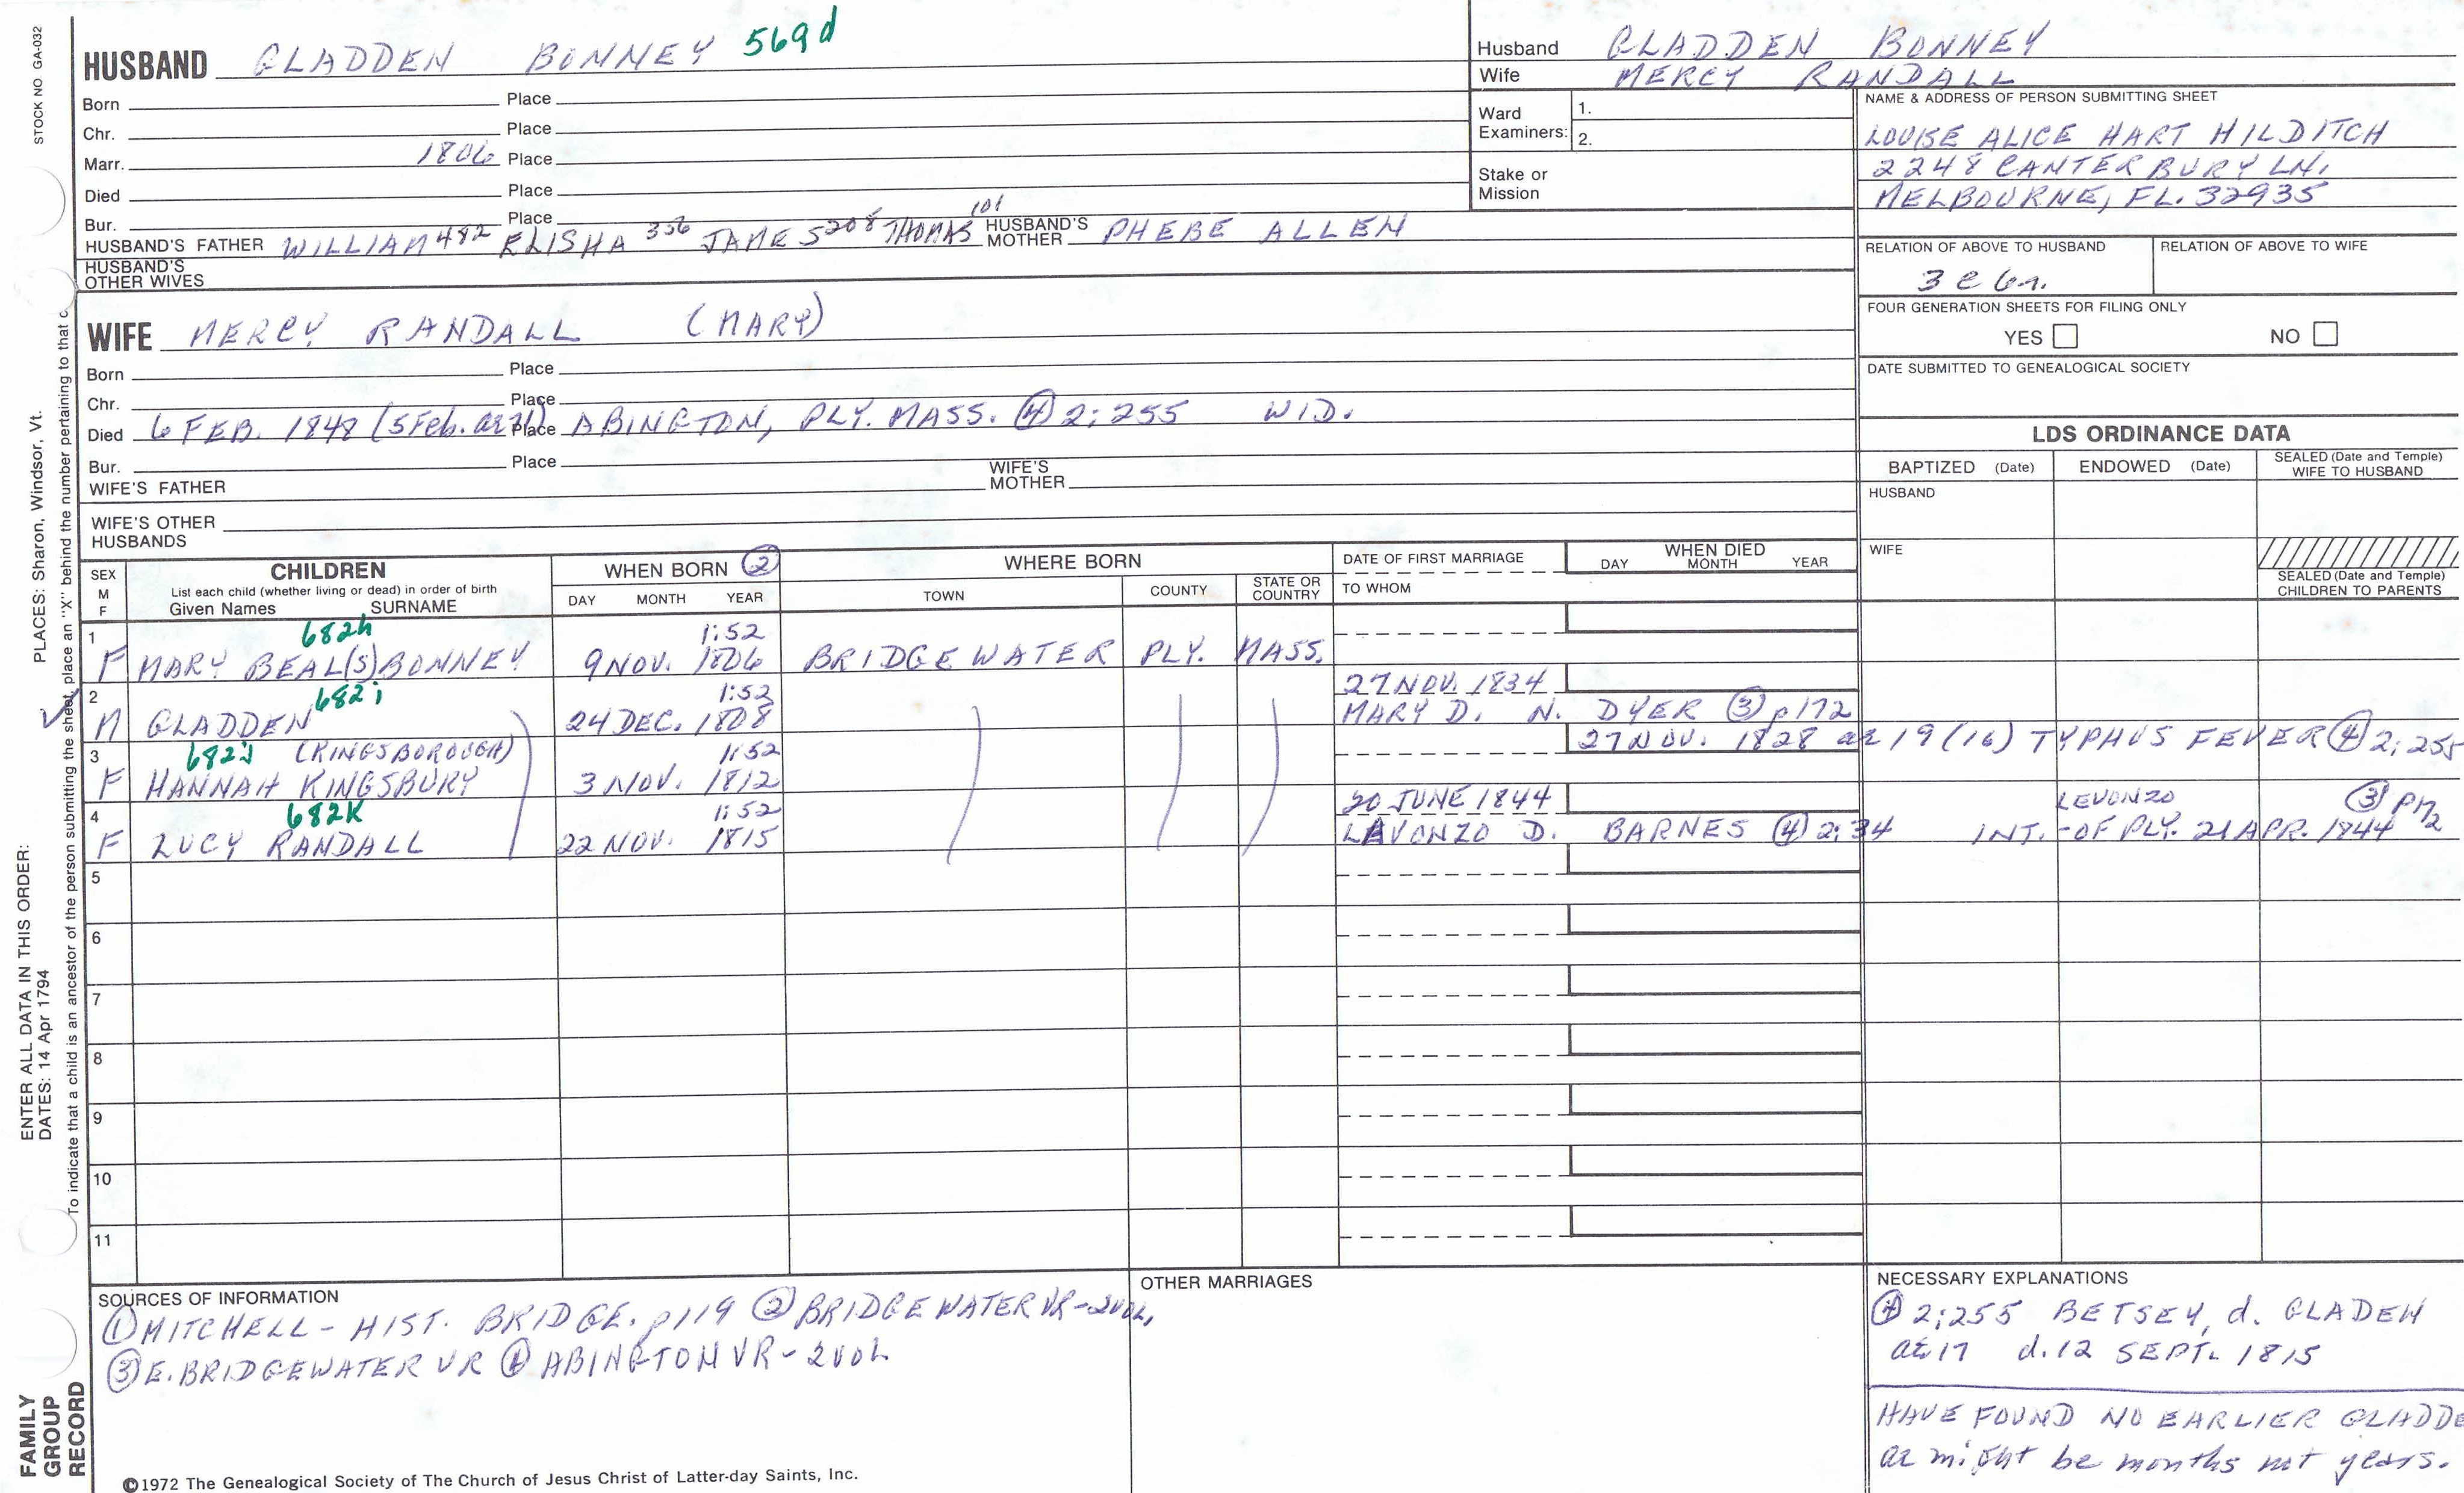 STOCK NO GA-032
HUSBAND GLADDEN BONNEY 569d
Born Place
Chr. Place
Marr. 1806 Place
Died Place
Bur. Place
HUSBAND'S FATHER WILLIAM 482 ELISHA 336 JAMES 208 THOMAS 101 HUSBAND'S MOTHER PHEBE ALLEN
HUSBAND'S OTHER WIVES
WIFE MERCY RANDALL (MARY)
Born Place
Chr. Place
Died 6 FEB. 1848 (5 Feb. ae 71) Place ABINGTON, PLY. MASS. ④ 2:255 WID.
Bur. Place
WIFE'S FATHER WIFE'S MOTHER
WIFE'S OTHER HUSBANDS
Husband GLADDEN BONNEY
Wife MERCY RANDALL
Ward Examiners: 1.
2.
Stake or Mission
NAME & ADDRESS OF PERSON SUBMITTING SHEET
LOUISE ALICE HART HILDITCH
2248 CANTERBURY LN.
MELBOURNE, FL. 32935
RELATION OF ABOVE TO HUSBAND RELATION OF ABOVE TO WIFE
FOUR GENERATION SHEETS FOR FILING ONLY
YES NO
DATE SUBMITTED TO GENEALOGICAL SOCIETY
LDS ORDINANCE DATA
BAPTIZED (Date) ENDOWED (Date) SEALED (Date and Temple) WIFE TO HUSBAND
HUSBAND
WIFE
SEALED (Date and Temple) CHILDREN TO PARENTS
SEX M F CHILDREN WHEN BORN ② WHERE BORN DATE OF FIRST MARRIAGE WHEN DIED
List each child (whether living or dead) in order of birth
Given Names SURNAME DAY MONTH YEAR TOWN COUNTY STATE OR COUNTRY TO WHOM DAY MONTH YEAR
1 682h 1:52
F MARY BEAL(S) BONNEY 9 NOV. 1806 BRIDGEWATER PLY. MASS.
2 682i 1:52 27 NOV. 1834
M GLADDEN 24 DEC. 1808 MARY D. N. DYER ③ p172
3 682j (KINGSBOROUGH) 1:52 27 NOV. 1828 ae 19 (16) TYPHUS FEVER ④ 2:255
F HANNAH KINGSBURY 3 NOV. 1812
4 682K 1:52 20 JUNE 1844 LEVONZO ③ P172
F LUCY RANDALL 22 NOV. 1815 LAVONZO D. BARNES ④ 2:34 INT. - OF PLY. 21 APR. 1844
5
6
7
8
9
10
11
SOURCES OF INFORMATION
① MITCHELL - HIST. BRIDGE. p119 ② BRIDGEWATER VR - 2 VOL,
③ E. BRIDGEWATER VR ④ ABINGTON VR - 2 VOL
OTHER MARRIAGES
NECESSARY EXPLANATIONS
④ 2:255 BETSEY, d. GLADEN
ae 17 d. 12 SEPT. 1815
HAVE FOUND NO EARLIER GLADDE
ae might be months not years.
©1972 The Genealogical Society of The Church of Jesus Christ of Latter-day Saints, Inc.
FAMILY GROUP RECORD
ENTER ALL DATA IN THIS ORDER:
DATES: 14 Apr 1794
PLACES: Sharon, Windsor, Vt.
To indicate that a child is an ancestor of the person submitting the sheet, place an "X" behind the number pertaining to that c